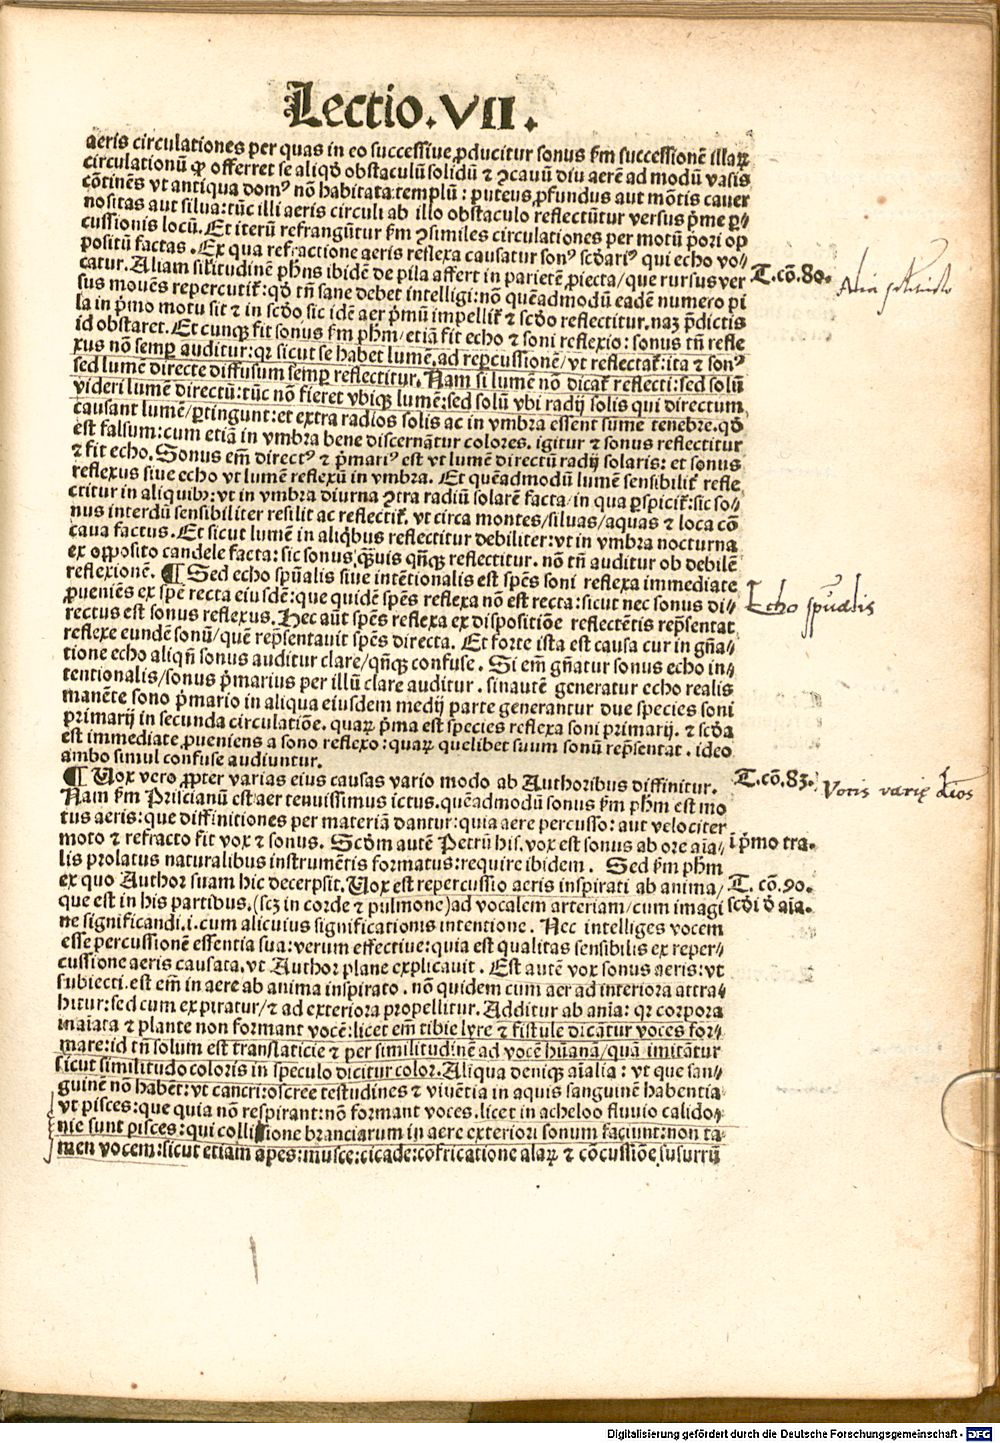 Lectio.VII.
aeris circulationes per quas in eo successiue ꝓducitur sonus km̄ successionē illaꝝ
circulationū ꝙ offerret se aliqḋ obstaculū solidū ⁊ ꝯcauū diu aerē ad modū vasis
cōtinēs vt antiqua domꝰ nō habitata:templū: puteus ꝓfundus aut mōtis cauer
nositas aut silua:tūc illi aeris circuli ab illo obstaculo reflectūtur versus p̄me ꝑ⸗
cussionis locū. Et iterū refrangūtur km̄ ꝯsimiles circulationes per motū p̄ori op
positū factas. Ex qua refractione aeris reflexa causatur sonꝰ scḋariꝰ qui echo vo⸗
catur. Aliam sīlitudinē phūs ibidē de pila affert in parietē ꝓiecta/que rursus ver
sus mouēs repercutit᷑: qḋ tn̄ sane debet intelligi: nō quēadmodū eadē numero pi
la in p̄mo motu sit ⁊ in scḋo sic idē aer p̄mū impellit᷑ ⁊ scḋo reflectitur. naꝫ p̄dictis
id obstaret. Et cunqꝫ fit sonus km̄ phm̄/etiā fit echo ⁊ soni reflexio: sonus tn̄ refle
xus nō semꝑ auditur: qꝛ sicut se habet lumē, ad repercussionē/vt reflectat᷑: ita ⁊ sonꝰ
sed lumē directe diffusum semꝑ reflectitur. Nam si lumē nō dicat᷑ reflecti: sed solū
videri lumē directū: tūc nō fieret vbiqꝫ lumē: sed solū vbi radij solis qui directum
causant lumē/ꝑtingunt: et extra radios solis ac in vmbra essent sume tenebre. qḋ
est falsum: cum etiā in vmbra bene discernātur colores. igitur ⁊ sonus reflectitur
⁊ fit echo. Sonus em̄ directꝰ ⁊ p̄mariꝰ est vt lumē directū radij solaris: et sonus
reflexus siue echo vt lumē reflexū in vmbra. Et quēadmodū lumē sensibilit᷑ refle
ctitur in aliquibꝫ: vt in vmbra diurna ꝯtra radiū solarē facta/in qua ꝑspicit᷑: sic so⸗
nus interdū sensibiliter resilit ac reflectit᷑. vt circa montes/siluas/aquas ⁊ loca cō
caua factus. Et sicut lumē in aliq̇bus reflectitur debiliter: vt in vmbra nocturna
ex opposito candele facta: sic sonus q̄uis qn̄qꝫ reflectitur. nō tn̄ auditur ob debilē
reflexionē. ¶ Sed echo spūalis siue intētionalis est spēs soni reflexa immediate
ꝓueniēs ex spē recta eiusdē: que quidē spēs reflexa nō est recta: sicut nec sonus di⸗
rectus est sonus reflexus. Hec aūt spēs reflexa ex dispositiōe reflectētis rep̄sentat
reflexe eundē sonū/quē rep̄sentauit spēs directa. Et forte ista est causa cur in gn̄a⸗
tione echo aliqn̄ sonus auditur clare/qn̄qꝫ confuse. Si em̄ gn̄atur sonus echo in⸗
tentionalis/sonus p̄marius per illū clare auditur. sinautē generatur echo realis
manēte sono p̄mario in aliqua eiusdem medij parte generantur due species soni
primarij in secunda circulatiōe. quaꝝ p̄ma est species reflexa soni primarij. ⁊ scḋa
est immediate ꝓueniens a sono reflexo: quaꝝ quelibet suum sonū rep̄sentat. ideo
ambo simul confuse audiuntur.
¶ Vox vero ꝓpter varias eius causas vario modo ab Authoribus diffinitur.
Nam km̄ Priscianū est aer tenuissimus ictus. quēadmodū sonus km̄ phm̄ est mo
tus aeris: que diffinitiones per materiā dantur: quia aere percusso: aut velociter
moto ⁊ refracto fit vox ⁊ sonus. Scḋm autē Petrū his. vox est sonus ab ore aīa⸗
lis prolatus naturalibus instrumētis formatus: require ibidem. Sed km̄ phm̄
ex quo Author suam hic decerpsit. Vox est repercussio aeris inspirati ab anima/
que est in his partibus.(scꝫ in corde ⁊ pulmone)ad vocalem arteriam/cum imagi
ne significandi.i.cum alicuius significationis intentione. Nec intelliges vocem
esse percussionē essentia sua: verum effectiue: quia est qualitas sensibilis ex reper⸗
cussione aeris causata. vt Author plane explicauit. Est autē vox sonus aeris: vt
subiecti. est em̄ in aere ab anima inspirato. nō quidem cum aer ad interiora attra⸗
hitur: sed cum expiratur/⁊ ad exteriora propellitur. Additur ab aīa: qꝛ corpora
inaīata ⁊ plante non formant vocē: licet em̄ tibie lyre ⁊ fistule dicātur voces for⸗
mare: id tn̄ solum est translaticie ⁊ per similitudinē ad vocē hūanā/quā imitātur
sicut similitudo coloris in speculo dicitur color. Aliqua deniqꝫ aīalia: vt que san⸗
guinē nō habēt: vt cancri: oscree testudines ⁊ viuētia in aquis sanguinē habentia
vt pisces: que quia nō respirant: nō formant voces. licet in acheloo fluuio calido⸗
nie sunt pisces: qui collisione branciarum in aere exteriori sonum faciunt: non ta⸗
men vocem: sicut etiam apes: musce: cicade: cōfricatione alaꝝ ⁊ cōcussiōe susurrū
T. cō. 80.
Echo spūalis
T. cō. 83.
Vocis varię
ī p̄mo tra.
T. cō. 90.
scḋi ḋ aīa.
Digitalisierung gefördert durch die Deutsche Forschungsgemeinschaft - DFG